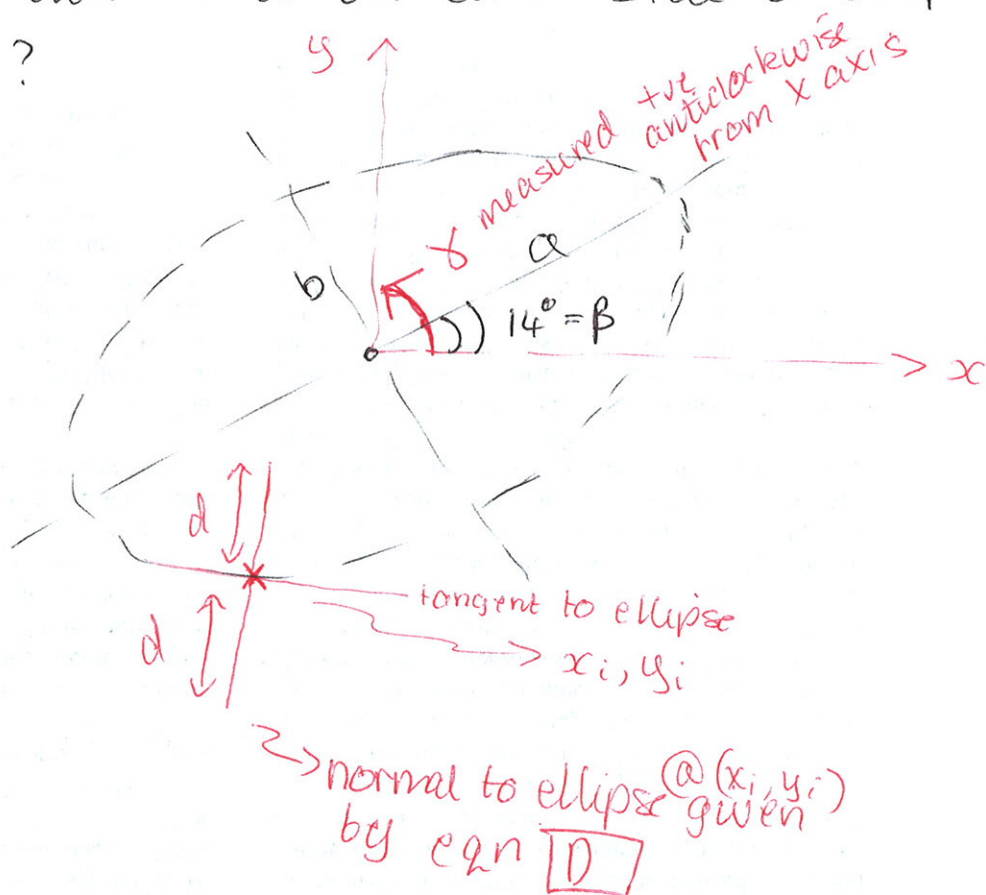 ?
y
γ measured +ve
anticlockwise
from x axis
b
a
14° = β
x
d
d
tangent to ellipse
xi, yi
normal to ellipse @ (xi, yi)
given
by eqn D